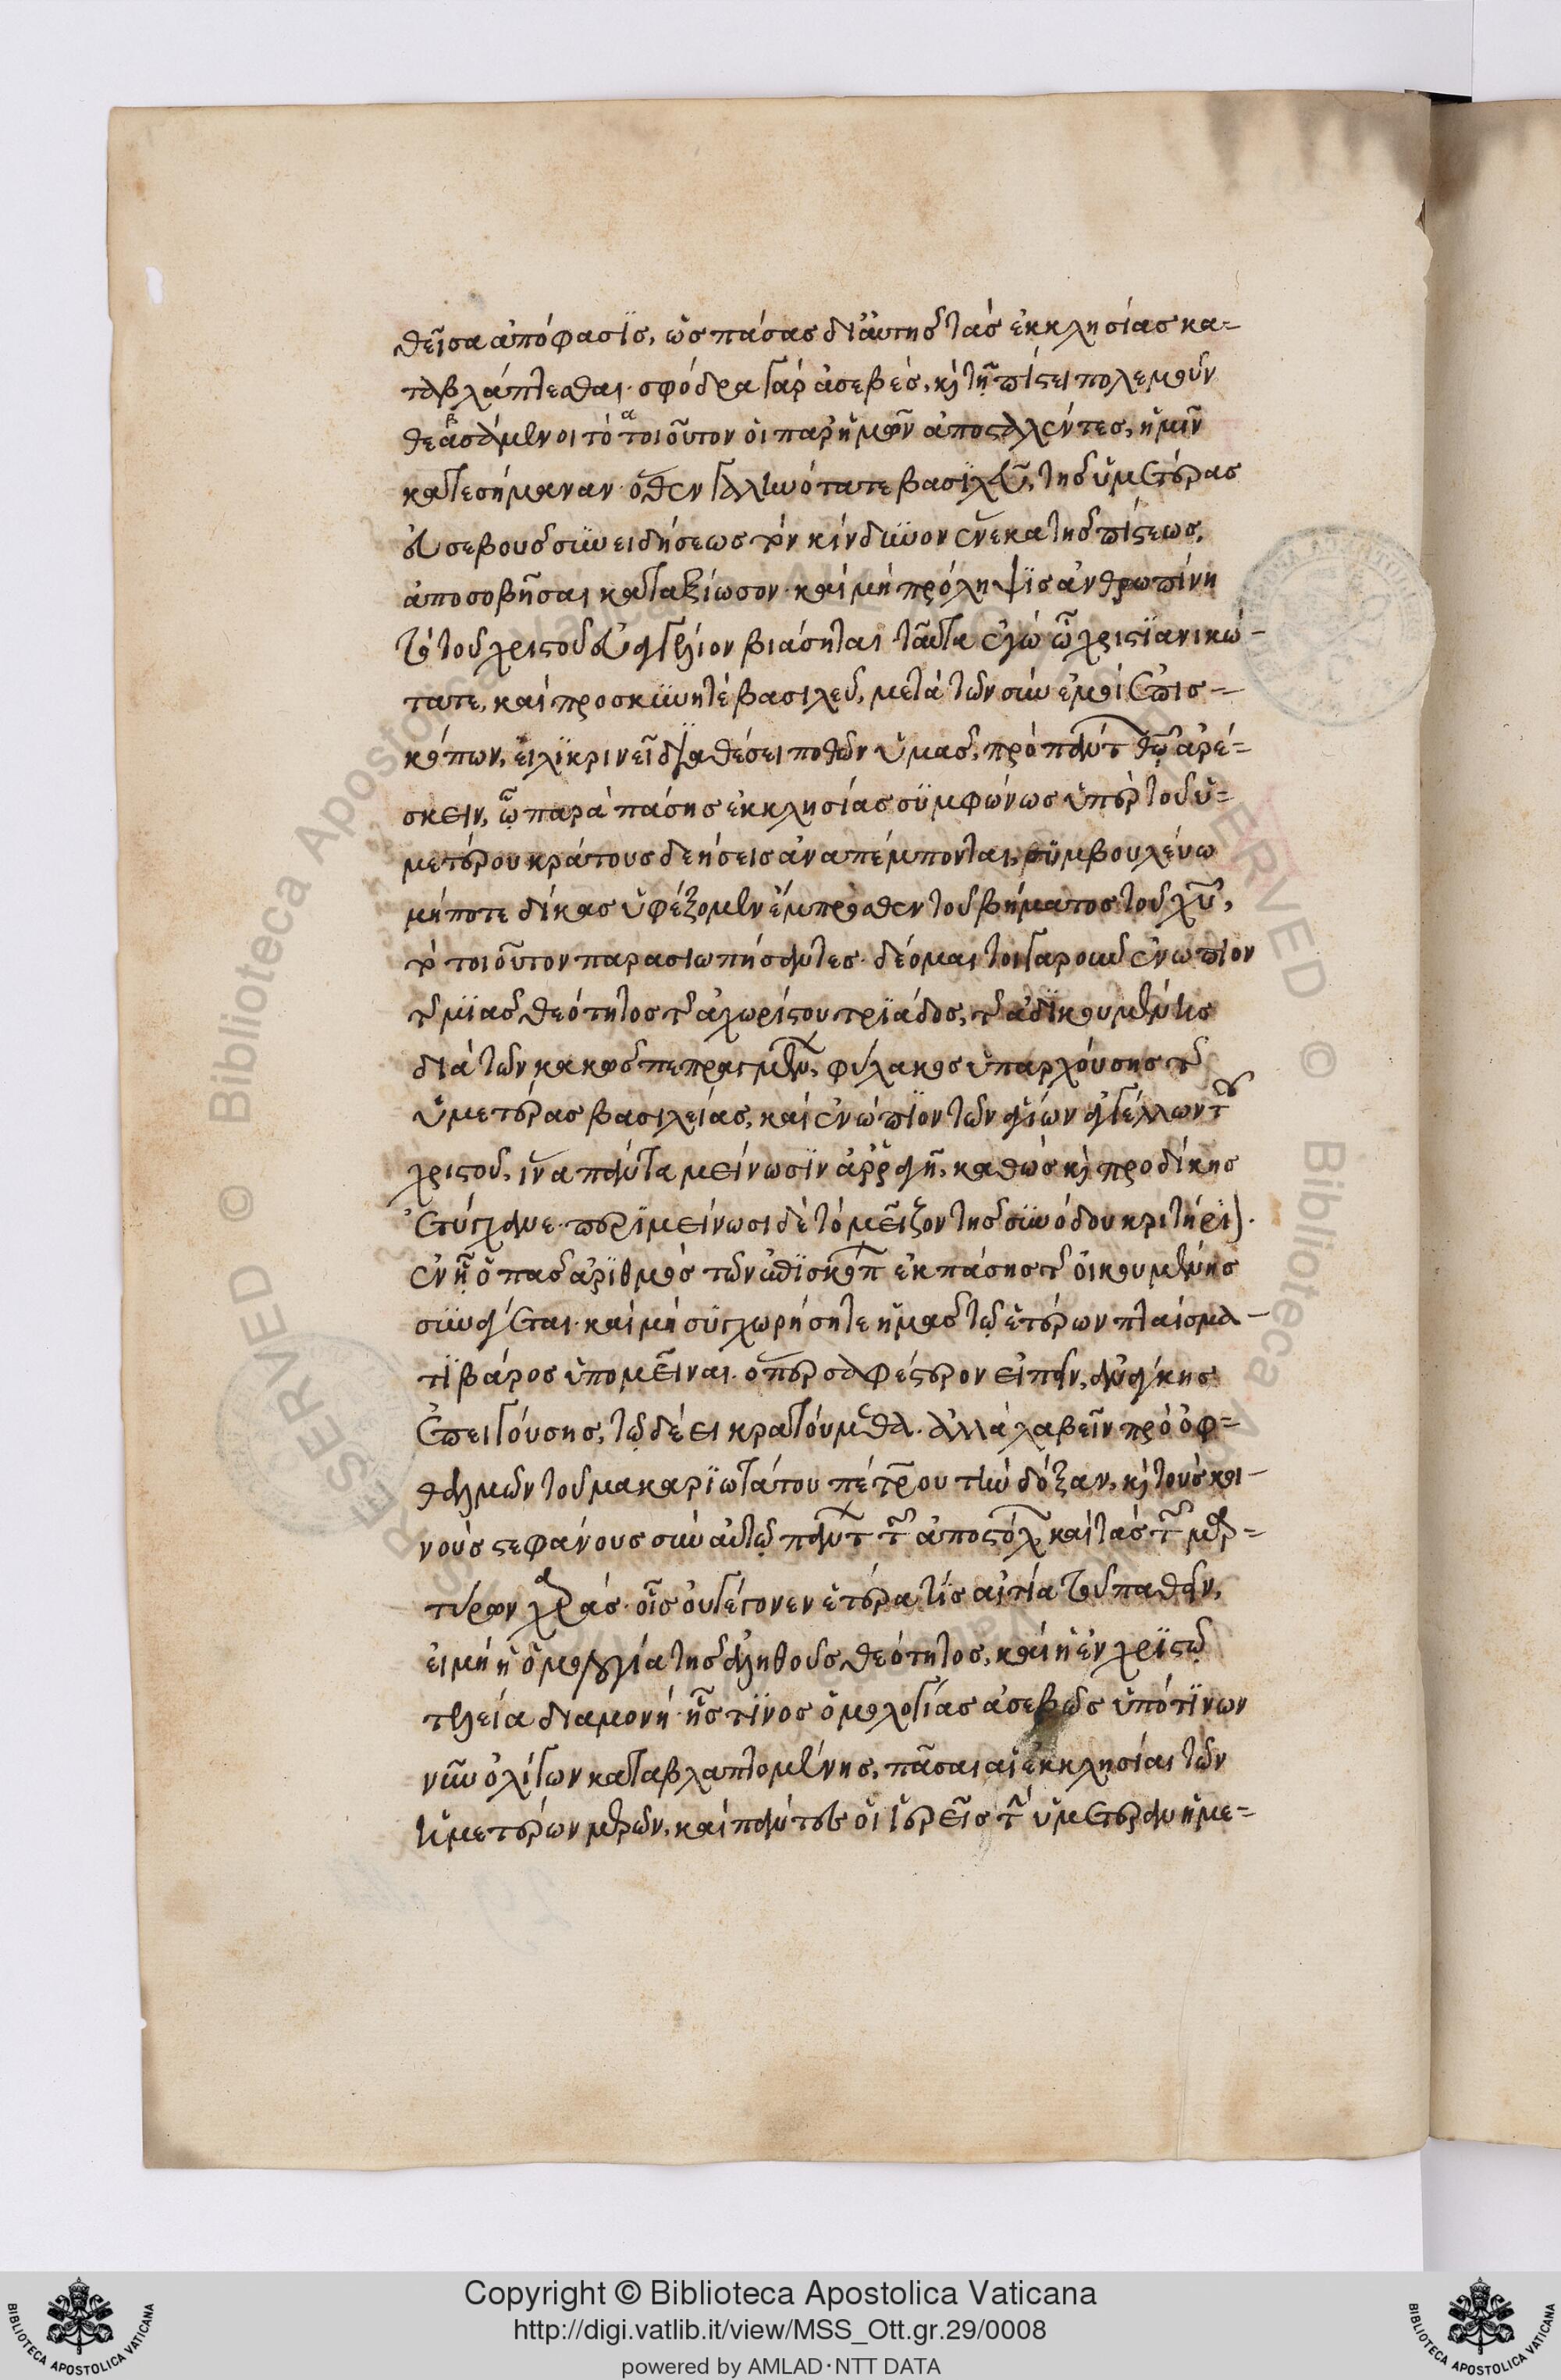 θεῖσα ἀπόφασϊς, ὡς πάσας δι' αὐτῆς τὰς ἐκκλησίας κα=
ταβλάπτεσθαι· σφόδρα γὰρ ἀσεβὲς, κỳ τῆ πίστει πολεμοῦν
θεασάμενοι τὸ τοιοῦτον οἱ παρ' ἡμῶν ἀποσταλέντες, ἡμῖν
κατεσήμαναν· ὅθεν γαληνότατε βασϊλεῦ, τῆς ὑμετέρας
εὐσεβοῦς συνειδήσεως τὸν κίνδυνον ἕνεκα τῆς πίστεως,
ἀποσοβῆσαι καταξίωσον· καὶ μὴ πρόληψϊς ἀνθρωπίνη
τὸ τοῦ χριστοῦ εὐαγγέλιον βιάσηται ταῦτα ἐγὼ ὦ χριστϊανικώ-
τατε, καὶ προσκυνητὲ βασιλεῦ, μετὰ τῶν σὺν ἐμοὶ ἐπισ-
κόπων, εἰλϊκρινεῖ δϊαθέσει ποθῶν ὑμᾶς, πρὸ πάντ θῶ ἀρέ=
σκειν, ὧ παρὰ πάσης ἐκκλησίας συμφώνως ὑπὲρ τοῦ ὑ=
μετέρου κράτους δεήσεις ἀναπέμπονται, συμβουλεύω
μήποτε δίκας ὑφέξομεν ἔμπροσθεν τοῦ βήματος τοῦ χῦ,
τὸ τοιοῦτον παρασιωπήσαντες· δέομαι τοιγαροῦν ἐνώπιον
τῆς μϊᾶς θεότητος τῆς ἀχωρίστου τρϊάδος, τῆς ἀδϊκουμένης
διὰ τῶν κακῶς πεπραγμέν, φύλακος ὑπαρχούσης τῆς
ὑμετέρας βασιλείας, καὶ ἐνώπϊον τῶν ἁγίων ἀγγέλων τοῦ
χριστοῦ, ἵνα πάντα μείνωσϊν ἀῤῥαγῆ, καθὼς κỳ πρὸ δίκης
ἐτύγχανε· περϊμείνωσι δὲ τὸ μεῖζον τῆς συνόδου κριτήρϊ).
ἐν ἧ ὁ πᾶς ἀρϊθμὸς τῶν ἐπϊσκόπ ἐκ πάσης τῆς οἰκουμένης
συνάγεται· καὶ μὴ συγχωρήσητε ἡμᾶς τῶ ἑτέρων πταίσμα-
τϊ βάρος ὑπομεῖναι· ὅπερ σαφέστερον εἰπεῖν, ἀνάγκης
ἐπειγούσης, τῶ δέει κρατούμεθα. ἀλλὰ λαβεῖν πρὸ ὀφ=
θαλμῶν τοῦ μακαρϊωτάτου πέτρου τὴν δόξαν, κỳ τοὺς κοι-
νοὺς στεφάνους σὺν αὐτῶ πάντ τῶν ἀποστόλ καὶ τὰς τῶν μαρ=
τύρων χαρὰς· οἷς οὐ γέγονεν ἑτέρα τϊς αἰτία τοῦ παθεῖν,
εἰ μὴ ἡ ὁμολογία τῆς ἀληθοῦς θεότητος, καὶ ἡ ἐν χρϊστῶ
τελεία διαμονὴ· ἧς τϊνος ὁμολογίας ἀσεβῶς ὑπὸ τϊνων
νῦν ὀλίγων καταβλαπτομένης, πᾶσαι αἱ ἐκκλησίαι τῶν
ἡμετέρων μερῶν, καὶ πάντες οἱ ἱερεῖς τὴν ὑμετέραν ἡμε=
Copyright © Biblioteca Apostolica Vaticana
http://digi.vatlib.it/view/MSS_Ott.gr.29/0008
powered by AMLAD·NTT DATA